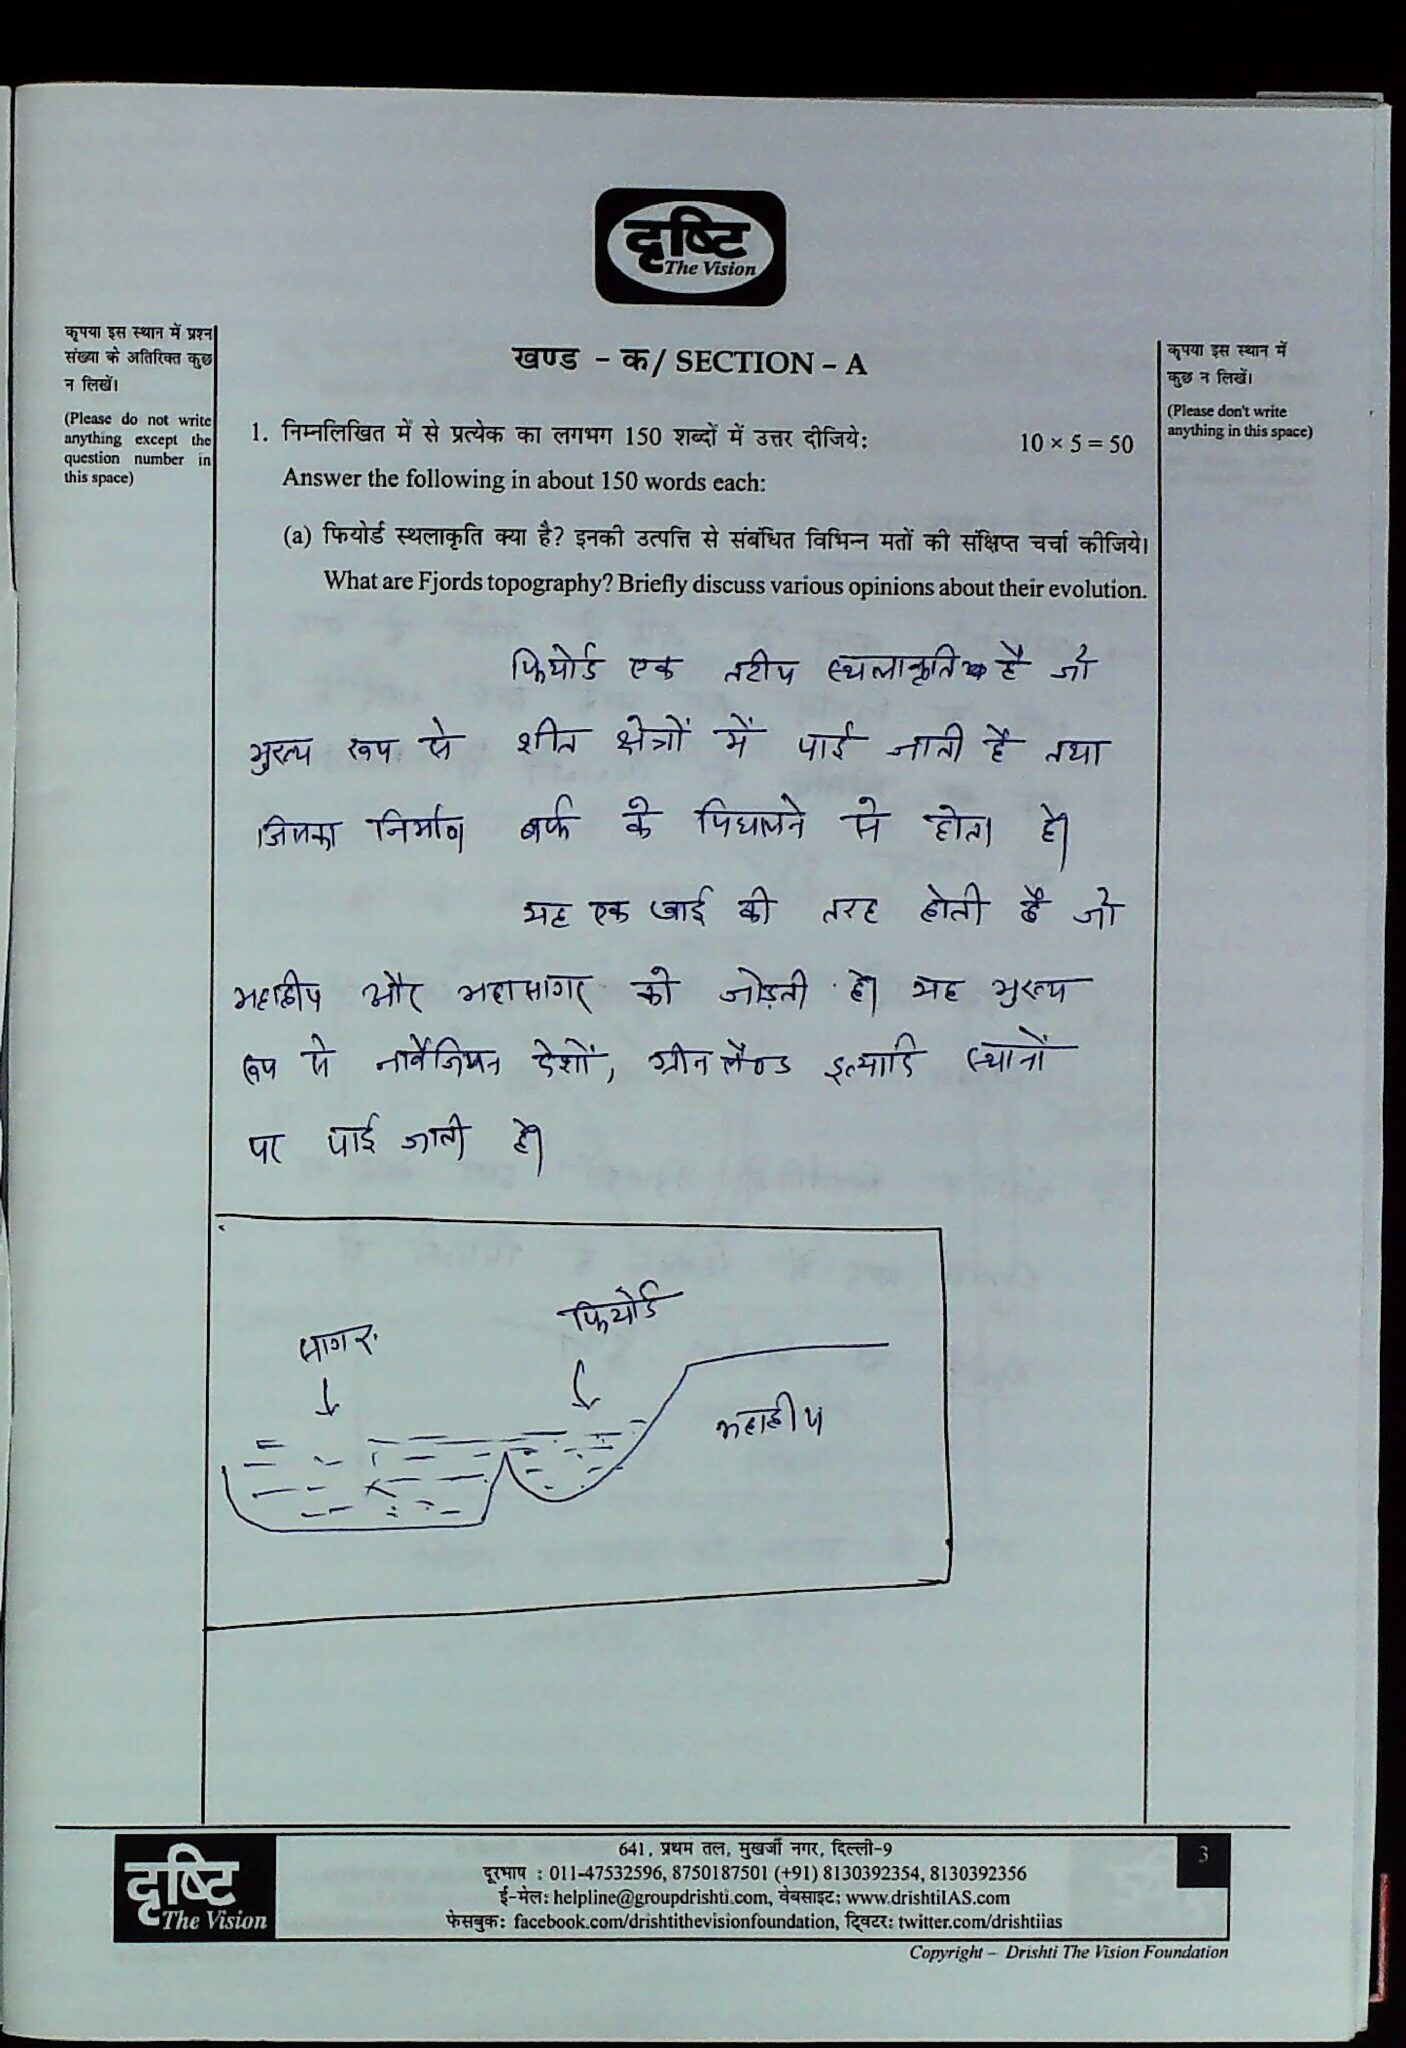 दृष्टि
The Vision
कृपया इस स्थान में प्रश्न
संख्या के अतिरिक्त कुछ
न लिखें।
(Please do not write
anything except the
question number in
this space)
खण्ड - क/ SECTION - A
कृपया इस स्थान में
कुछ न लिखें।
(Please don't write
anything in this space)
1. निम्नलिखित में से प्रत्येक का लगभग 150 शब्दों में उत्तर दीजिये: 10 × 5 = 50
Answer the following in about 150 words each:
(a) फियोर्ड स्थलाकृति क्या है? इनकी उत्पत्ति से संबंधित विभिन्न मतों की संक्षिप्त चर्चा कीजिये।
What are Fjords topography? Briefly discuss various opinions about their evolution.
फियोर्ड एक तटीय स्थलाकृति है जो
मुख्य रूप से शीत क्षेत्रों में पाई जाती है तथा
जिसका निर्माण बर्फ के पिघलने से होता है।
यह एक खाई की तरह होती है जो
महाद्वीप और महासागर को जोड़ती है। यह मुख्य
रूप से नार्वेजियन देशों, ग्रीनलैण्ड इत्यादि स्थानों
पर पाई जाती है।
फियोर्ड
सागर
महाद्वीप
दृष्टि
The Vision
641, प्रथम तल, मुखर्जी नगर, दिल्ली-9
दूरभाष : 011-47532596, 8750187501 (+91) 8130392354, 8130392356
ई-मेल: helpline@groupdrishti.com, वेबसाइट: www.drishtiIAS.com
फेसबुक: facebook.com/drishtithevisionfoundation, ट्विटर: twitter.com/drishtiias
3
Copyright – Drishti The Vision Foundation